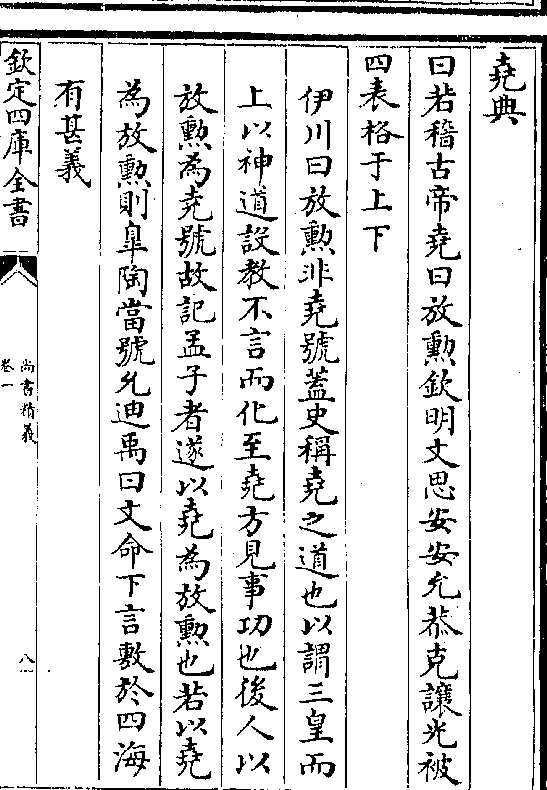 堯典
曰若稽古帝堯曰放勲欽明文思安安允恭克讓光被
四表格于上下
伊川曰放勲非堯號蓋史稱堯之道也以謂三皇而
上以神道設教不言而化至堯方見事功也後人以
放勲為堯號故記孟子者遂以堯為放勲也若以堯
為放勲則臯陶當號允迪禹曰文命下言敷於四海
有甚義
欽定四庫全書
尚書精義
卷一
八